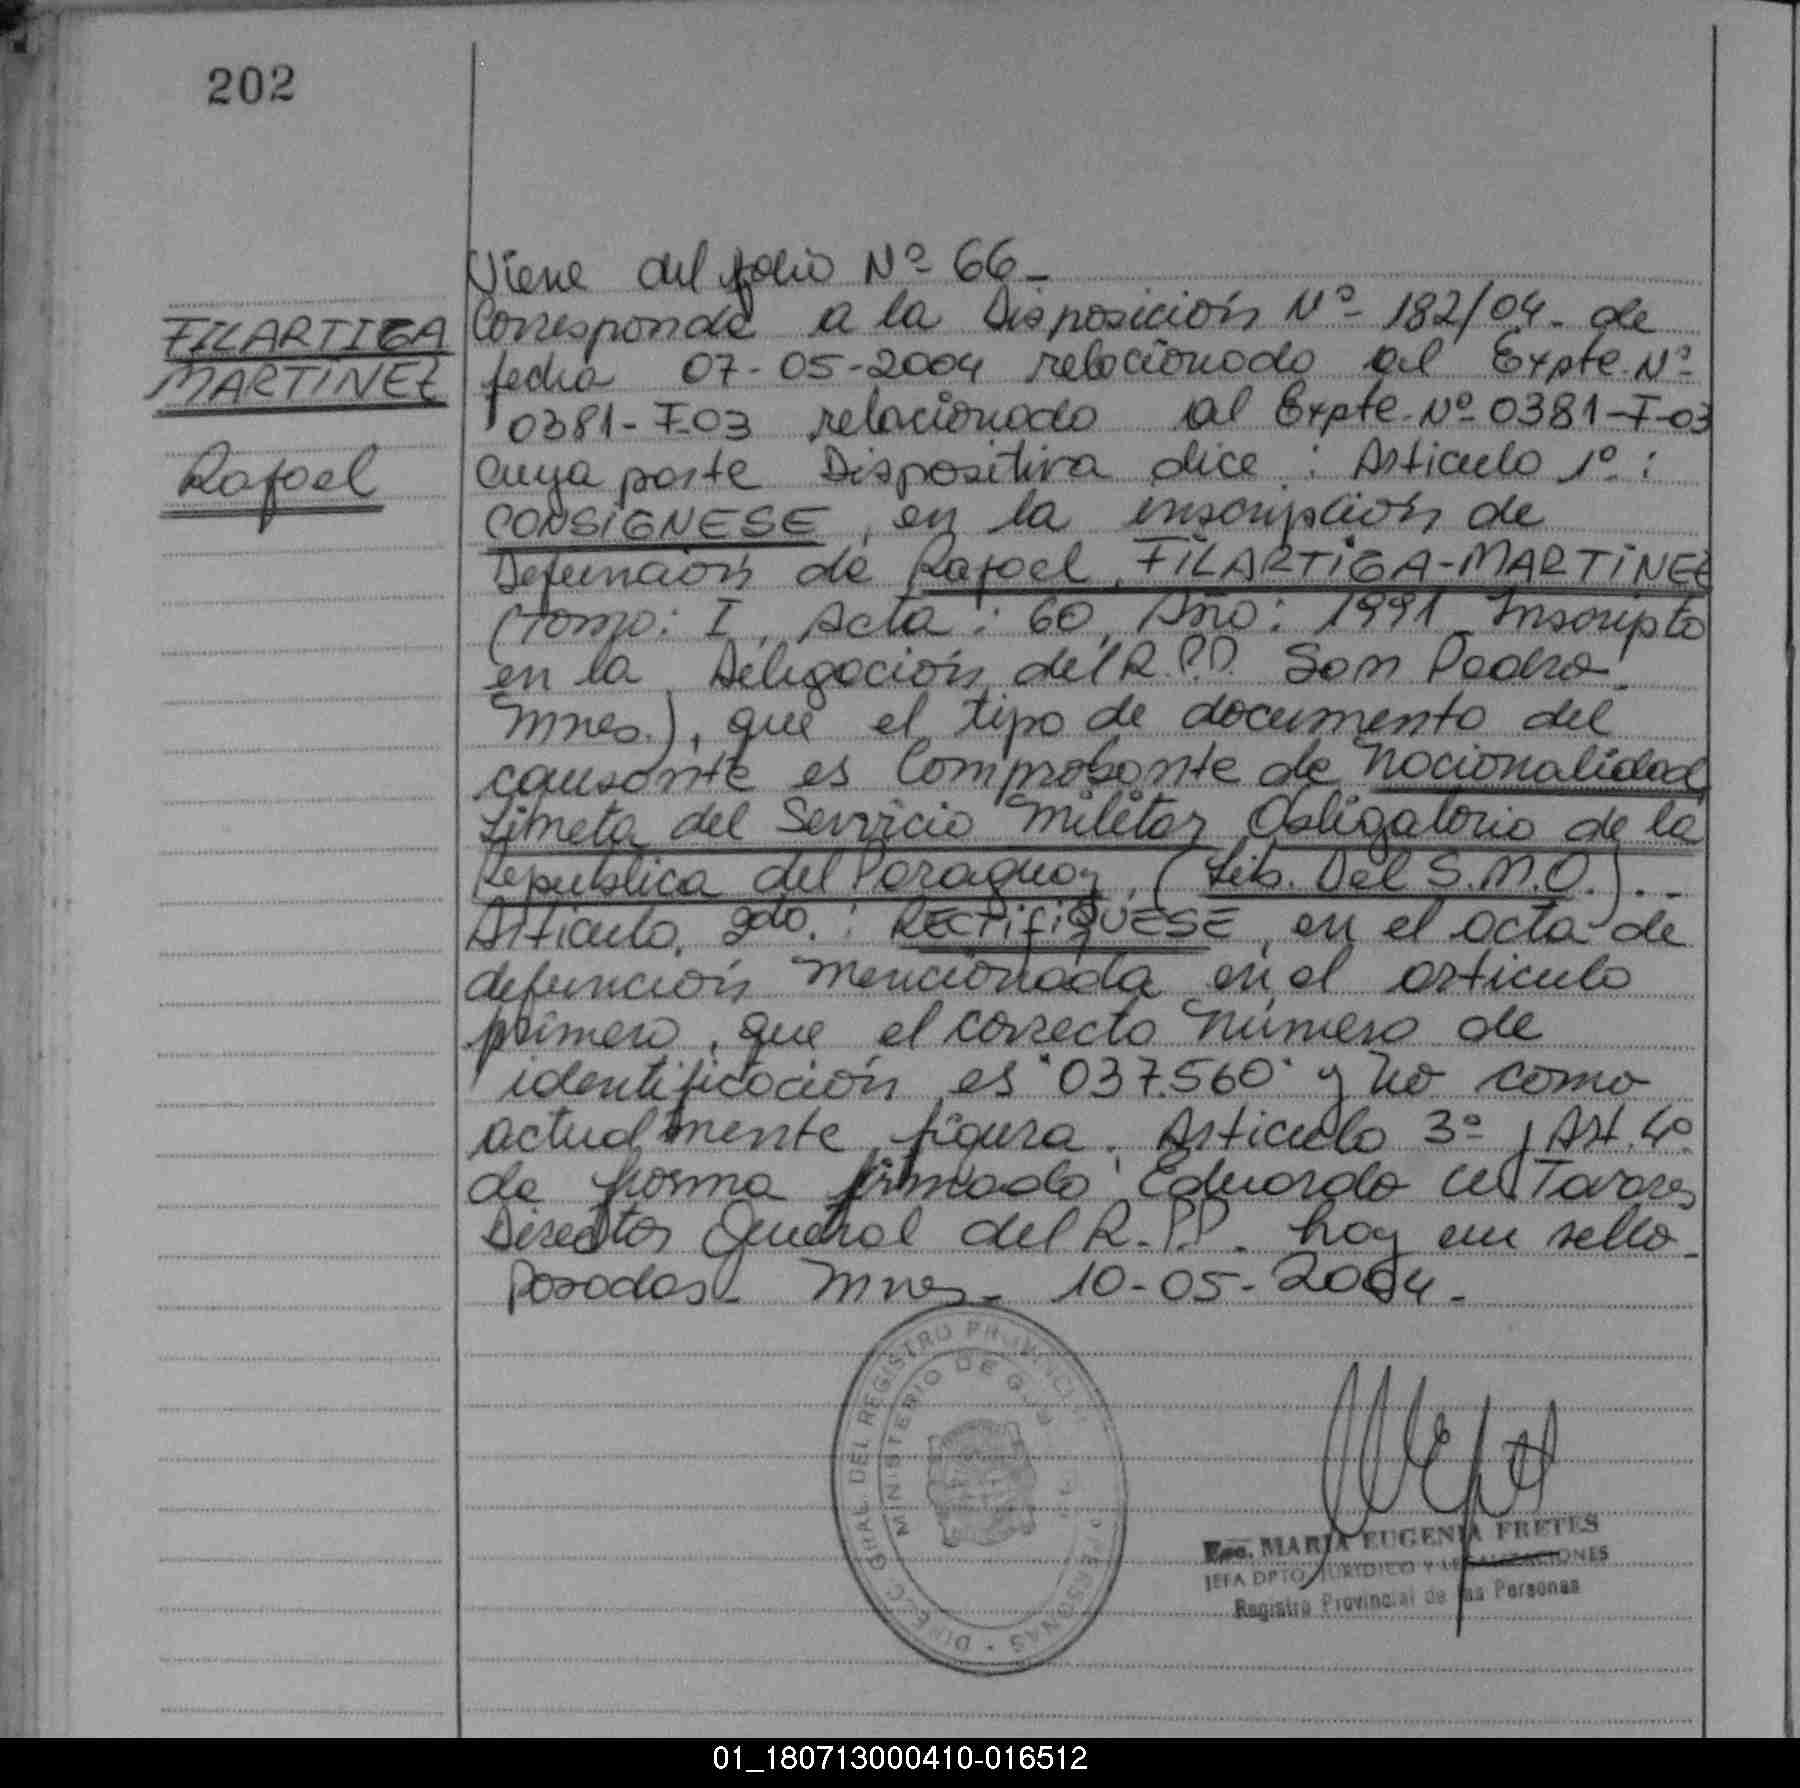 202
FILARTIGA
MARTINEZ
Rafael
Viene del folio Nº 66-
Corresponde a la Disposición Nº 182/04- de
fecha 07-05-2004 relacionado al Expte. Nº
0381-I-03 relacionado al Expte. Nº 0381-I-03
cuya parte Dispositiva dice: Articulo 1º:
CONSIGNESE, en la inscripción de
Defunción de Rafael, FILARTIGA-MARTINEZ
(Tomo: I, Acta: 60, Año: 1991 Inscripto
en la Delegación del R.P.P. San Pedro-
Mnes.), que el tipo de documento del
causante es Comprobante de nacionalidad
Libreta del Servicio Militar Obligatorio de la
Republica del Paraguay, (Lib. Del S.M.O.).-
Articulo, 2do.: RECTIFIQUESE, en el acta de
defunción mencionada en el articulo
primero, que el correcto número de
identificación es "037.560" y no como
actualmente figura. Articulo 3º y Art. 4º
de forma firmado Eduardo Tavares
Director General del R.P.P. hay un sello-
Posadas- Mnes- 10-05-2004.-
DIREC. GRAL. DEL REGISTRO PROVINCIAL PERSONAS
MINISTERIO DE GOB
Esc. MARIA EUGENIA FRETES
JEFA DPTO. JURIDICO Y LEGALIZACIONES
Registro Provincial de las Personas
01_180713000410-016512